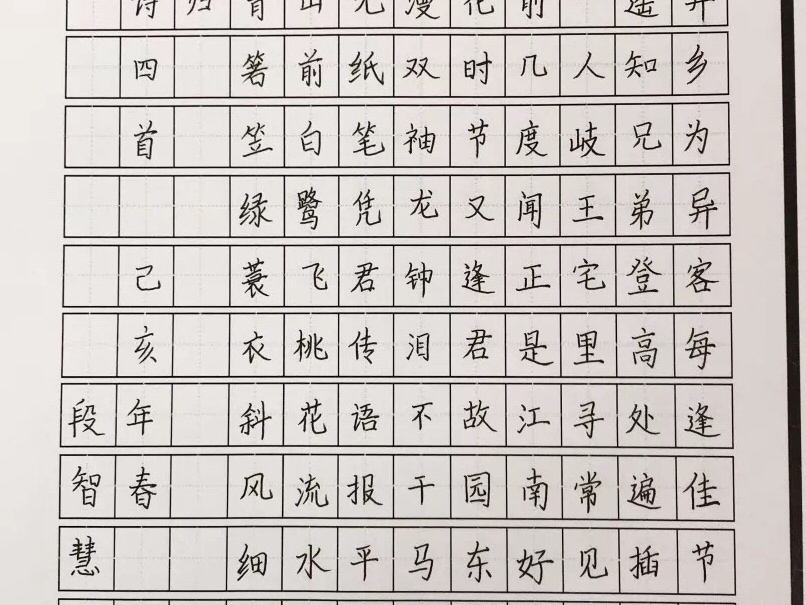 异乡为异客每逢佳节
遥知兄弟登高处遍插
人岐王宅里寻常见
前几度闻正是江南好
花时节又逢君故园东
漫双袖龙钟泪不干马
无纸笔凭君传语报平
山前白鹭飞桃花流水
青箬笠绿蓑衣斜风细
归
诗四首 己亥年春
段智慧